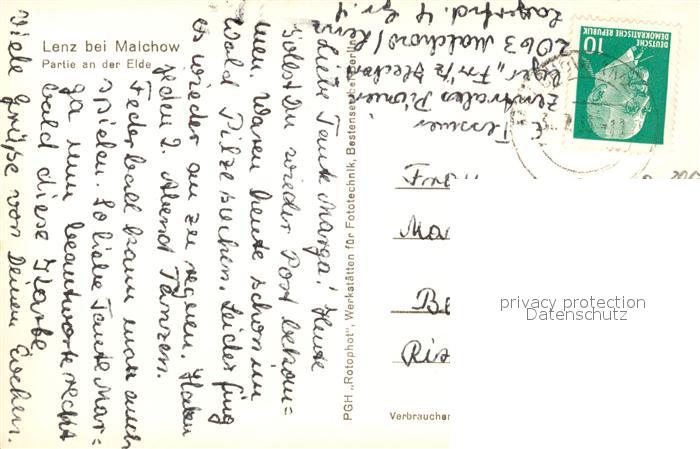 Lenz bei Malchow
Partie an der Elde
Liebe Tante Marga! Heute
sollst Du wieder Post bekom=
men. Waren heute schon im
Wald Pilze suchen. Leider fing
es wieder an zu regnen. Haben
jeden 2. Abend Tanzen.
Federball kann man auch
spielen. So liebe Tante Mar=
ga nun beantworte recht
bald diese Karte
Viele Grüße von Deinen Evchen.
PGH „Rotophot", Werkstätten für Fototechnik, Bestensee bei Berlin
E.
Zentrales Pionier
lager „Fritz Heckert
2063 Malchow/Lenz
Lagerfrd. 4 Gr. 4
DEUTSCHE
DEMOKRATISCHE REPUBLIK
10
Fr
Ma
Be
Ris
Verbraucher
privacy protection
Datenschutz